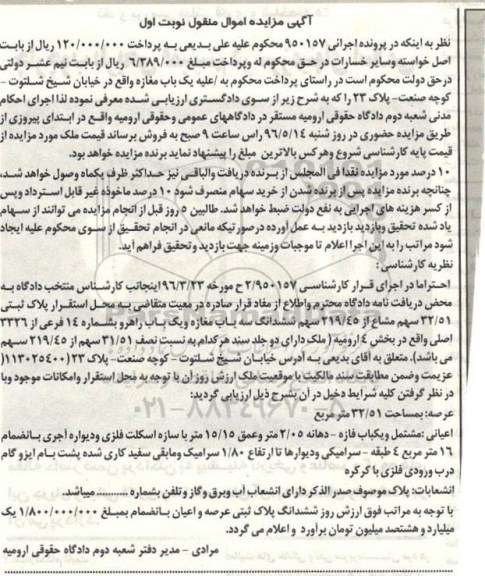 آگهی مزایده اموال منقول نوبت اول
نظر به اینکه در پرونده اجرائی ۹۵۰۱۵۷ محکوم علیه علی بدیعی به پرداخت ۱۲۰/۰۰۰/۰۰۰ ریال از بابت
اصل خواسته وسایر خسارات در حق محکوم له وپرداخت مبلغ ۶/۳۸۹/۰۰۰ ریال از بابت نیم عشر دولتی
درحق دولت محکوم است در راستای پرداخت محکوم به /علیه یک باب مغازه واقع در خیابان شیخ شلتوت -
کوچه صنعت- پلاک ۲۳ را که به شرح زیر از سوی دادگستری ارزیابی شده معرفی نموده لذا اجرای احکام
مدنی شعبه دوم دادگاه حقوقی ارومیه مستقر در دادگاههای عمومی وحقوقی ارومیه واقع در ابتدای پیروزی از
طریق مزایده حضوری در روز شنبه ۹۶/۵/۱۴ راس ساعت ۹ صبح به فروش برساند قیمت ملک مورد مزایده از
قیمت پایه کارشناسی شروع وهرکس بالاترین مبلغ را پیشنهاد نماید برنده مزایده خواهد بود.
۱۰ درصد مورد مزایده نقدا فی المجلس از برنده دریافت والباقی نیز حداکثر ظرف یکماه وصول خواهد شد،
چنانچه برنده مزایده پس از برنده شدن از خرید سهام منصرف شود ۱۰ درصد ماخوذه غیر قابل استرداد وپس
از کسر هزینه های اجرایی به نفع دولت ضبط خواهد شد. طالبین ۵ روز قبل از انجام مزایده می توانند از سهام
یاد شده تحقیق وبازدید بازدید به عمل آورده درصورتیکه مانعی در انجام تحقیق از سوی محکوم علیه ایجاد
شود مراتب را به این اجرا اعلام تا موجبات وزمینه جهت بازدید وتحقیق فراهم آید.
نظریه کارشناسی:
احتراما در اجرای قرار کارشناسی ۲/۹۵۰۱۵۷ ح مورخه ۹۶/۳/۲۳ اینجانب کارشناس منتخب دادگاه به
محض دریافت نامه دادگاه محترم واطلاع از مفاد قرار صادره در معیت متقاضی به محل استقرار پلاک ثبتی
۳۲/۵۱ سهم مشاع از ۲۱۹/۴۵ سهم ششدانگ سه باب مغازه ویک باب راهرو بشماره ۱۴ فرعی از ۳۳۲۶
اصلی واقع در بخش ۴ ارومیه ( ملک دارای دو جلد سند هرکدام به نسبت نصف ۳۱/۵۱ سهم از ۲۱۹/۴۵ سهم
می باشد). متعلق به آقای بدیعی به آدرس خیابان شیخ شلتوت - کوچه صنعت- پلاک ۲۳ (۱۱۳۰۲۵۴۰۰)
عزیمت وضمن مطابقت سند مالکیت با موقعیت ملک ارزش روز ان با توجه به محل استقرار وامکانات موجود وبا
در نظر گرفتن کلیه شرایط دخیل در آن بشرح ذیل ارزیابی گردید:
عرصه: بمساحت ۳۲/۵۱ متر مربع
اعیانی :مشتمل ویکباب فازه - دهانه ۲/۰۵ متر وعمق ۱۵/۱۵ متر با سازه اسکلت فلزی ودیواره آجری بانضمام
۱۶ متر مربع ۴ طبقه - سرامیکی ودیوارها تا ارتفاع ۱/۸۰ سرامیک ومابقی سفید کاری شده پشت بام ایزو گام
درب ورودی فلزی با کرکره
انشعابات: پلاک موصوف صدر الذکر دارای انشعاب آب وبرق وگاز وتلفن بشماره ........... میباشد.
با توجه به مراتب فوق ارزش روز ششدانگ پلاک ثبتی عرصه و اعیان بانضمام بمبلغ ۱/۸۰۰/۰۰۰/۰۰۰ یک
میلیارد و هشتصد میلیون تومان برآورد و اعلام می گردد.
مرادی - مدیر دفتر شعبه دوم دادگاه حقوقی ارومیه